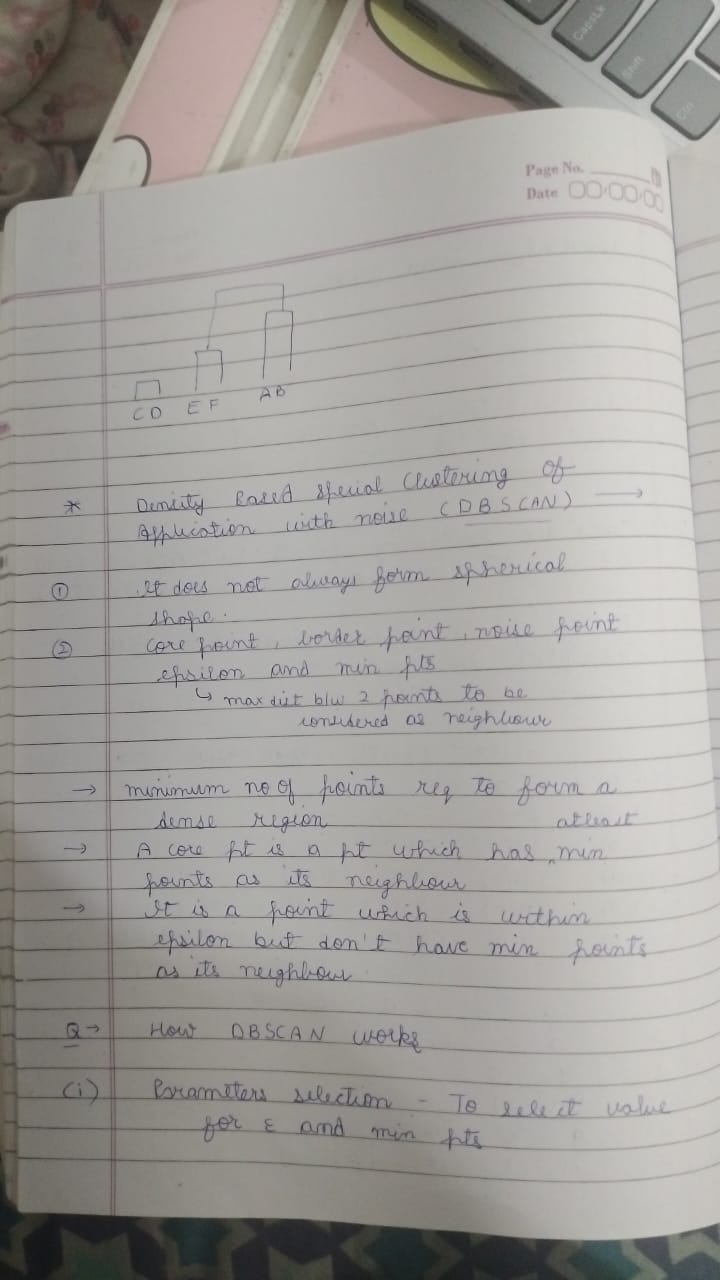 CapsLk
Shift
Ctrl
Page No.
Date
C D E F A B
* Density Based Special Clustering of
Application with noise (DBSCAN) →
① It does not always form spherical
shape.
② Core point, border point, noise point
epsilon and min pts
↳ max dist b/w 2 points to be
considered as neighbour
→ minimum no of points req to form a
dense region
→ A core pt is a pt which has atleast min
points as its neighbour
→ It is a point which is within
epsilon but don't have min points
as its neighbour
Q→ How DBSCAN works
(i) Parameters selection - To select value
for ε and min pts